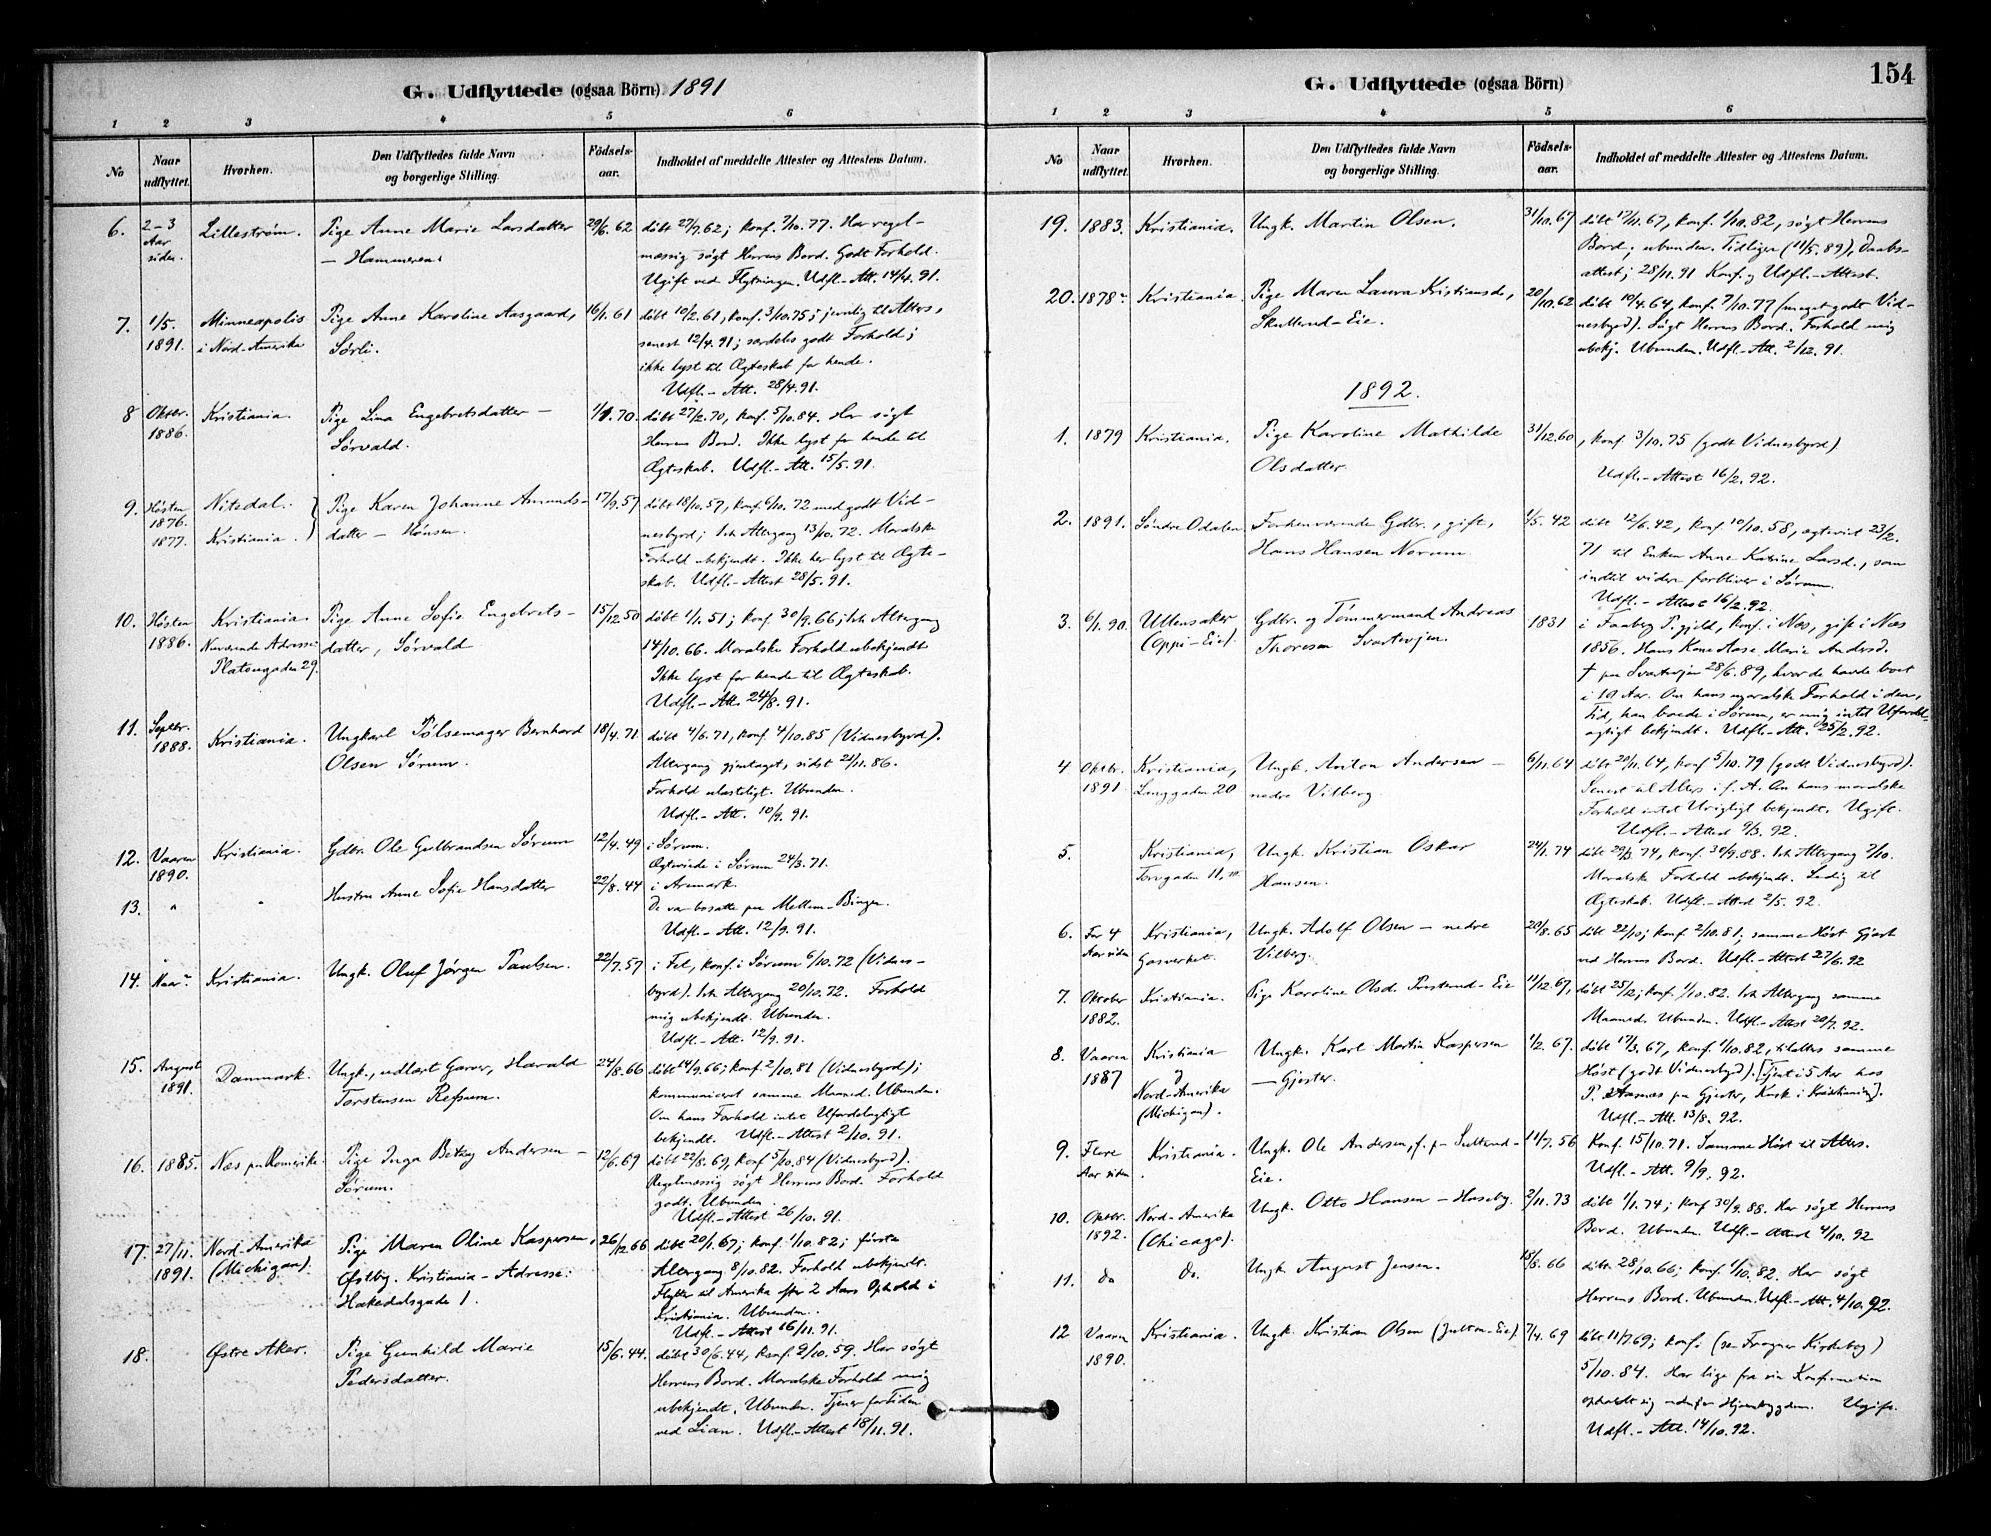 G. Udflyttede (ogsaa Börn). 1891
1 2 3 4 5 6
No
Naar udflyttet.
Hvorhen.
Den Udflyttedes fulde Navn
og borgerlige Stilling.
Födsels-
aar.
Indholdet af meddelte Attester og Attestens Datum.
6. 2-3 Aar siden. Lillestrøm. Pige Anne Marie Larsdatter 29/6.62 döbt 27/7.62; konf. 7/10.77. Har regel-
— Hammeren. mæssig søgt Herrens Bord. Godt Forhold.
Ugift ved Flytningen. Udfl.-Att. 14/4.91.
7. 1/5. 1891. Minneapolis Pige Anne Karoline Aasgaard, 16/1.61 döbt 10/2.61, konf. 3/10.75; jevnlig til Alters,
i Nord-Amerika Sørli. senest 12/4.91; særdeles godt Forhold;
ikke lyst til Ægteskab for hende.
Udfl.-Att. 28/4.91.
8 Oktbr. 1886. Kristiania. Pige Lina Engebretsdatter — 1/1.70. döbt 27/2.70, konf. 5/10.84. Har søgt
Sörvald. Herrens Bord. Ikke lyst for hende til
Ægteskab. Udfl.-Att. 15/5.91.
9. Høsten 1876. Nitedal. Pige Karen Johanne Amunds- 17/9.57 döbt 18/10.57, konf. 6/10.72 med godt Vid-
1877. Kristiania. datter — Hønsen. nesbyrd; 1ste Altergang 13/10.72. Moralske
Forhold ubekjendt. Ikke her lyst til Ægte-
skab. Udfl.-Attest 28/5.91.
10. Høsten 1886. Kristiania. Pige Anne Sofie Engebrets- 15/12.50 döbt 1/1.51; konf. 30/9.66; 1ste Altergang
Nuværende Adresse: datter, Sørvald 14/10.66. Moralske Forhold ubekjendt
Platousgaden 29. Ikke lyst for hende til Ægteskab.
Udfl.-Att. 24/8.91.
11. Septbr. 1888. Kristiania. Ungkarl Pølsemager Bernhard 18/4.71. döbt 4/6.71, konf. 4/10.85 (Vidnesbyrd).
Olsen Sørum. Altergang gjentaget, sidst 21/11.86.
Forhold ulasteligt. Ubunden.
Udfl.-Att. 10/9.91.
12. Vaaren 1890. Kristiania. Gdbr. Ole Gulbrandsen Sørum 12/4.49 i Sørum.
Ægteviede i Sørum 24/3.71.
13. " " Hustru Anne Sofie Hansdatter 22/8.44 i Aremark.
De var bosatte paa Mellem-Binger.
Udfl.-Att. 12/9.91.
14. Kristiania. Ungk. Oluf Jørgen Paulsen. 22/7.57 i Fet, konf. i Sørum 6/10.72 (Vidnes-
byrd). 1ste Altergang 20/10.72. Forhold
mig ubekjendt. Ubunden.
Udfl.-Att. 12/9.91.
15. August 1891. Danmark. Ungk., udlært Garver, Harald 24/8.66 döbt 14/9.66; konf. 2/10.81 (Vidnesbyrd);
Torstensen Refsum. kommuniceret samme Maaned. Ubunden.
Om hans Forhold intet Ufordelagtigt
bekjendt. Udfl.-Attest 2/10.91.
16. 1885. Næs paa Romerike. Pige Inga Betzy Andersen — 12/6.69 döbt 22/8.69, konf. 5/10.84 (Vidnesbyrd).
Sørum. Regelmæssig søgt Herrens Bord. Forhold
godt. Ubunden.
Udfl.-Attest 26/10.91.
17. 27/11. 1891. Nord-Amerika Pige Maren Oline Kaspersen, 26/12.66 döbt 20/1.67; konf. 1/10.82; første
(Michigan). Østby. Kristiania-Adresse: Altergang 8/10.82. Forhold ubekjendt.
Hakedalsgade 1. Flytter til Amerika efter 2 Aars Ophold i
Kristiania. Ubunden.
Udfl.-Attest 16/11.91.
18. Østre Aker. Pige Gunhild Marie 15/6.44. döbt 30/6.44, konf. 2/10.59. Har søgt
Pedersdatter. Herrens Bord. Moralske Forhold mig
ubekjendt. Ubunden. Tjener for Tiden
ved Lian. Udfl.-Attest 18/11.91.
G. Udflyttede (ogsaa Börn)
154
1 2 3 4 5 6
No
Naar udflyttet.
Hvorhen.
Den Udflyttedes fulde Navn
og borgerlige Stilling.
Födsels-
aar.
Indholdet af meddelte Attester og Attestens Datum.
19. 1883. Kristiania. Ungk. Martin Olsen. 31/10.67 döbt 17/11.67, konf. 1/10.82, søgt Herrens
Bord; ubunden. Tidligere (11/5.89), Daabs-
attest; 28/11.91 Konf. og Udfl.-Attest.
20. 1878. Kristiania. Pige Maren Laura Kristiansd., 20/10.62 döbt 10/4.64, konf. 7/10.77 (meget godt Vid-
Skutterud-Eie. nesbyrd). Søgt Herrens Bord. Forhold mig
ubekj. Ubunden. Udfl.-Att. 2/12.91.
1892.
1. 1879 Kristiania. Pige Karoline Mathilde 31/12.60, konf. 3/10.75 (godt Vidnesbyrd)
Olsdatter. Udfl.-Attest 16/2.92.
2. 1891. Søndre Odalen Forhenværende Gdbr., gift, 1/5.42 döbt 12/6.42, konf. 10/10.58, ægteviet 23/2.
Hans Hansen Norum. 71 til Enken Anne Katrine Larsd., som
indtil videre forbliver i Sørum.
Udfl.-Attest 16/2.92.
3. 6/1.90. Ullensaker Gdbr. og Tømmermand Andreas 1831 i Faaberg P.gjeld, konf. i Næs, gift i Næs
(Oppi-Eie). Thoresen Svartevjen. 1856. Hans Kone Aase Marie Andersd.
† paa Svartevjen 28/6.89, hvor de havde boet
i 10 Aar. Om hans moralske Forhold i den
Tid, han boede i Sørum, er mig intet Ufordel-
agtigt bekjendt. Udfl.-Att. 25/2.92.
4 Oktbr. 1891. Kristiania, Ungk. Anton Andersen — 6/11.64 döbt 20/11.64, konf. 5/10.79 (godt Vidnesbyrd).
Langgaden 20 nedre Vilberg. Senest til Alters i f. A. Om hans moralske
Forhold intet Urigtigt bekjendt. Ugift.
Udfl.-Attest 9/3.92.
5. Kristiania, Ungk. Kristian Oskar 24/1.74 döbt 29/3.74, konf. 30/9.88. 1ste Altergang 7/10.
Torvgaden 11, Hansen. Moralske Forhold ubekjendt. Ledig til
Ægteskab. Udfl.-Attest 2/5.92.
6. For 4 Aar siden Kristiania, Ungk. Adolf Olsen — nedre 20/8.65 döbt 22/10; konf. 2/10.81; samme Høst Gjest
Gasverket. Vilberg. ved Herrens Bord. Udfl.-Attest 27/6.92
7. Oktober 1882. Kristiania. Pige Karoline Olsd. Presterud-Eie 11/12.67, döbt 25/12; konf. 1/10.82. 1ste Altergang samme
Maaned. Ubunden. Udfl.-Attest 20/7.92.
8. Vaaren 1887 Kristiania Ungk. Karl Martin Kaspersen 1/2.67. döbt 17/3.67, konf. 1/10.82, til Alters samme
Nord-Amerika — Gjester. Høst (godt Vidnesbyrd). [Tjent i 5 Aar hos
(Michigan). P. Aasnes paa Gjester, Kusk i Kristiania].
Udfl.-Att. 13/8.92.
9. Flere Aar siden Kristiania. Ungk. Ole Andersen, f. p. Sulterud- 11/7.56 Konf. 15/10.71. Samme Høst til Alters.
Eie. Udfl.-Att. 9/9.92.
10. Oktbr. 1892. Nord-Amerika Ungk. Otto Hansen — Haseby. 2/11.73 döbt 1/1.74; konf. 30/9.88. Har søgt Herrens
(Chicago). Bord. Ubunden. Udfl.-Attest 4/10.92
11. do Do. Ungk. August Jensen. 18/8.66 döbt 28/10.66; konf. 1/10.82. Har søgt
Herrens Bord. Ubunden. Udfl.-Att. 4/10.92.
12 Vaaren 1890. Kristiania. Ungk. Kristian Olsen (Julton-Eie) 7/4.69 döbt 11/7.69; konf. (se Frogner Kirkebog)
5/10.84. Har lige fra sin Konfirmation
opholdt sig udenfor Hjembygden. Ugift.
Udfl.-Att. 14/10.92.